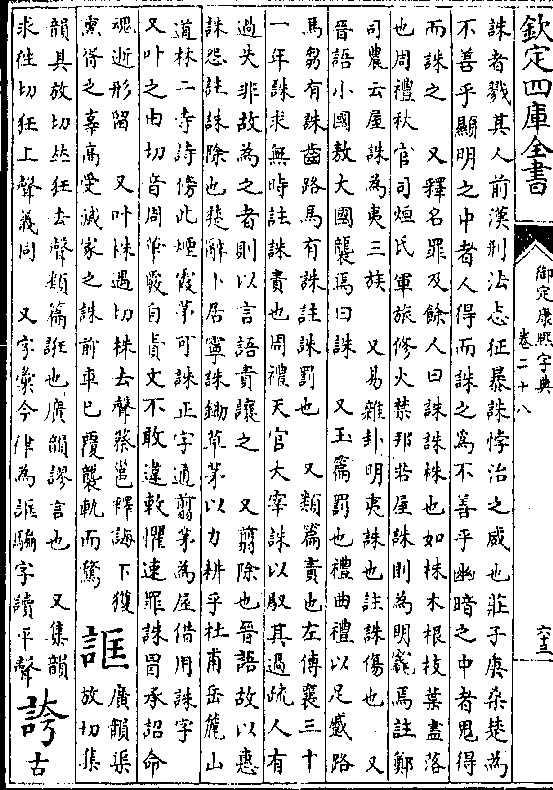 欽定四庫全書
御定康熙字典
卷二十八
誅者戮其人前漢刑法志征暴誅悖治之威也莊子庚桑楚為
不善乎顯明之中者人得而誅之為不善乎幽暗之中者鬼得
而誅之 又釋名罪及餘人曰誅誅株也如株木根枝葉盡落
也周禮秋官司烜氏軍旅修火禁邦若屋誅則為明竁焉註鄭
司農云屋誅為夷三族 又易雜卦明夷誅也註誅傷也 又
晉語小國敖大國襲焉曰誅 又玉篇罰也禮曲禮以足蹙路
馬芻有誅齒路馬有誅註誅罰也 又類篇責也左傳襄三十
一年誅求無時註誅責也周禮天官大宰誅以馭其過疏人有
過失非故為之者則以言語責讓之 又翦除也晉語故以惠
誅怨註誅除也楚辭卜居寧誅鋤草茅以力耕乎杜甫岳麓山
道林二寺詩傍此煙霞茅可誅正字通翦茅為屋借用誅字
又叶之由切音周自貞文不敢違敕懼速罪誅冒承詔命
魂逝形留 又叶株遇切株去聲蔡邕釋誨下獲
熏胥之辜高受滅家之誅前車已覆襲軌而騖
誆
廣韻渠
放切集
韻具放切𠀤狂去聲類篇誑也廣韻謬言也 又集韻
求往切狂上聲義同 又字彙今俗為誆騙字讀平聲
誇
古